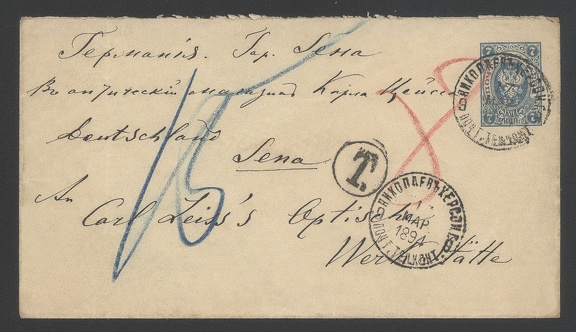 Германія. Гор. Jena
Въ оптическій магазинъ Карла Цейса
Deutschland
Jena
An
Carl Zeiss's Optische
Werkstätte
T.
15
7
7
НИКОЛАЕВЪ ХЕРСОН. Г.
МАР
1894
ПОЧТ. ТЕЛ. КОНТ.
НИКОЛАЕВЪ ХЕРСОН.
ПОЧТ. ТЕЛ. КОНТ.